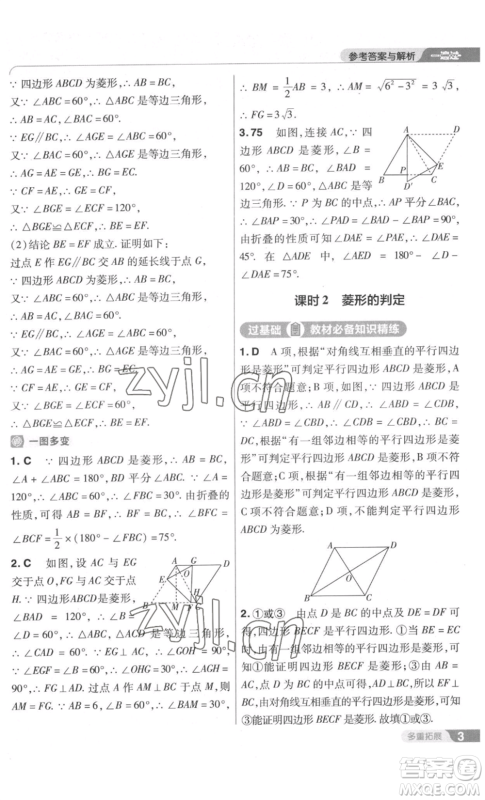 参考答案与解析
∵ 四边形 ABCD 为菱形,∴ AB = BC,
又∵ ∠ABC=60°,∴ △ABC 是等边三角形,
∴ AB = AC,∠ACB=60°.
∵ EG∥BC,∴ ∠AGE = ∠ABC=60°,
∵ ∠BAC=60°,∴ △AGE 是等边三角形,
∴ AG = AE = GE,∴ BG = EC.
∵ CF = AE,∴ GE = CF.
∵ ∠BGE = ∠ECF=120°,
∴ △BGE≌△ECF,∴ BE = EF.
(2)结论 BE = EF.证明如下:
过点 E 作 EG∥BC 交 AB 的延长线于点 G,
∵ 四边形 ABCD 为菱形,∴ AB = BC,
∵ ∠ABC=60°,∴ △ABC 是等边三角形,
∴ AB = AC,∠ACB=60°.
∵ EG∥BC,∴ ∠AGE = ∠ABC=60°.
∵ ∠BAC=60°,
∴ △AGE 是等边三角形,
∴ AG = AE = GE,∴ BG = CE.
∵ AE = CF,∴ GE = CF.
∵ ∠BGE = ∠ECF=60°,
∴ △BGE≌△ECF,∴ BE = EF.
一图多变
1. C ∵ 四边形 ABCD 是菱形,∴ AB = BC,
∠A + ∠ABC = 180°,BD 平分 ∠ABC. ∵ ∠A =
120°,∴ ∠ABC = 60°,∠CBF = 30°. 由折叠的
性质,可得 AB = BF,∴ BF = BC,∴ ∠BFC =
∠BCF = 1/2 ×(180° - ∠CBF)= 75°.
2. C 如图,设 AC 与 EG
交于点 O,FG 交 AC 于点 H.
∵ 四边形 ABCD 是菱形,
∠BAD = 120°,∴ ∠B =
∠D = 60°,易知 △ABC,
△ACD 是等边三角形,∴ ∠CAD = 60°.
∵ ∠EGF = ∠B = 60°,∴ ∠OHG = 90°,
∴ FG⊥AD. 过点 A 作 AM⊥BC 于点 M,则
AM = FG. ∵ AB = 6,∠B = 60°,∴ ∠BAM = 30°,
∴ BM = 1/2 AB = 3,∴ AM = √(6²-3²) = 3√3,
∴ FG = 3√3.
3. 75 如图,连接 AC,∵ 四
边形 ABCD 是菱形,∠B =
60°,∴ ∠BAD = 120°,
∠D = 60°,△ABC 是等边三
角形. ∵ P 为 BC 的中点,∴ AP 平分 ∠BAC,
∴ ∠BAP=30°,∴ ∠PAD = ∠BAD-∠BAP=90°,
由折叠的性质可得 ∠DAE = ∠PAE = 45°.
∵ 在 △ADE 中,∠AED = 180° - ∠D -
∠DAE = 75°.
课时2 菱形的判定
过基础 教材必备知识精练
1. D A 项,根据“对角线互相垂直的平行四边
形是菱形”可判定平行四边形 ABCD 为菱形,
故 A 项不符合题意;B 项,∵ AB∥CD,∴ ∠ABD =
∠CDB. ∵ ∠ABD = ∠ADB,∴ ∠ADB = ∠CDB,
∴ AB = AD,根据“有一组邻边相等的平行四边
形是菱形”可判定平行四边形 ABCD 是菱形,
故 B 项不符合题意;C 项,根据“有一组邻边相
等的平行四边形是菱形”可判定平行四边形
ABCD 是菱形,故 C 项不符合题意;D 项不能判定平行四边形
ABCD 为菱形.
2. ①或③ 由题意得 BD = CD,∵ DE = DF,
∴ 四边形 BECF 是平行四边形. ①∵ BE = EC,
∴ 四边形 BECF 是菱形;②由四边形 BECF
是平行四边形,BF∥CE 可知,根据已知条件
②不能证明四边形 BECF 是菱形;③由 AB =
AC,D 是 BC 的中点可得,EF⊥BC,∴ 平行四
边形 BECF 是菱形. 故填①或③,均可证
明四边形 BECF 是菱形.
多重拓展 3
zyjl.cn
zyjl.cn